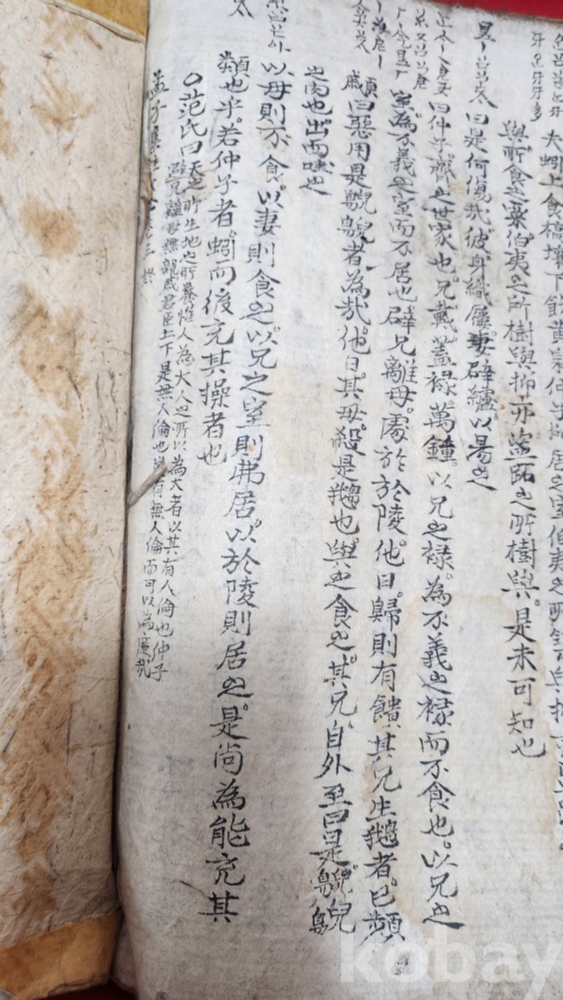 夫蚓上食槁壤下飮黃泉仲子所居之室伯夷之所築與抑
與所食之粟。伯夷之所樹與抑亦盜跖之所樹與。是未可知也
曰是何傷哉。彼身織屨。妻辟纑。以易之
曰仲子。齊之世家也。兄戴蓋祿。萬鍾。以兄之祿。為不義之祿而不食也。以兄之
室為不義之室而不居也。辟兄離母。處於於陵。他日。歸則有饋其兄生鵝者。己頻
顣曰惡用是鶃鶃者為哉。他日。其母。殺是鵝也。與之食之。其兄。自外至曰是鶃鶃
之肉也。出而哇之
以母則不食。以妻則食之。以兄之室則弗居。以於陵則居之。是尚為能充其
類也乎。若仲子者。蚓而後充其操者也
〇范氏曰天之所生地之所養惟人為大人之所以為大者以其有人倫也仲子
避兄離母無親戚君臣上下是無人倫也豈有無人倫而可以為廉哉
孟子
kobay